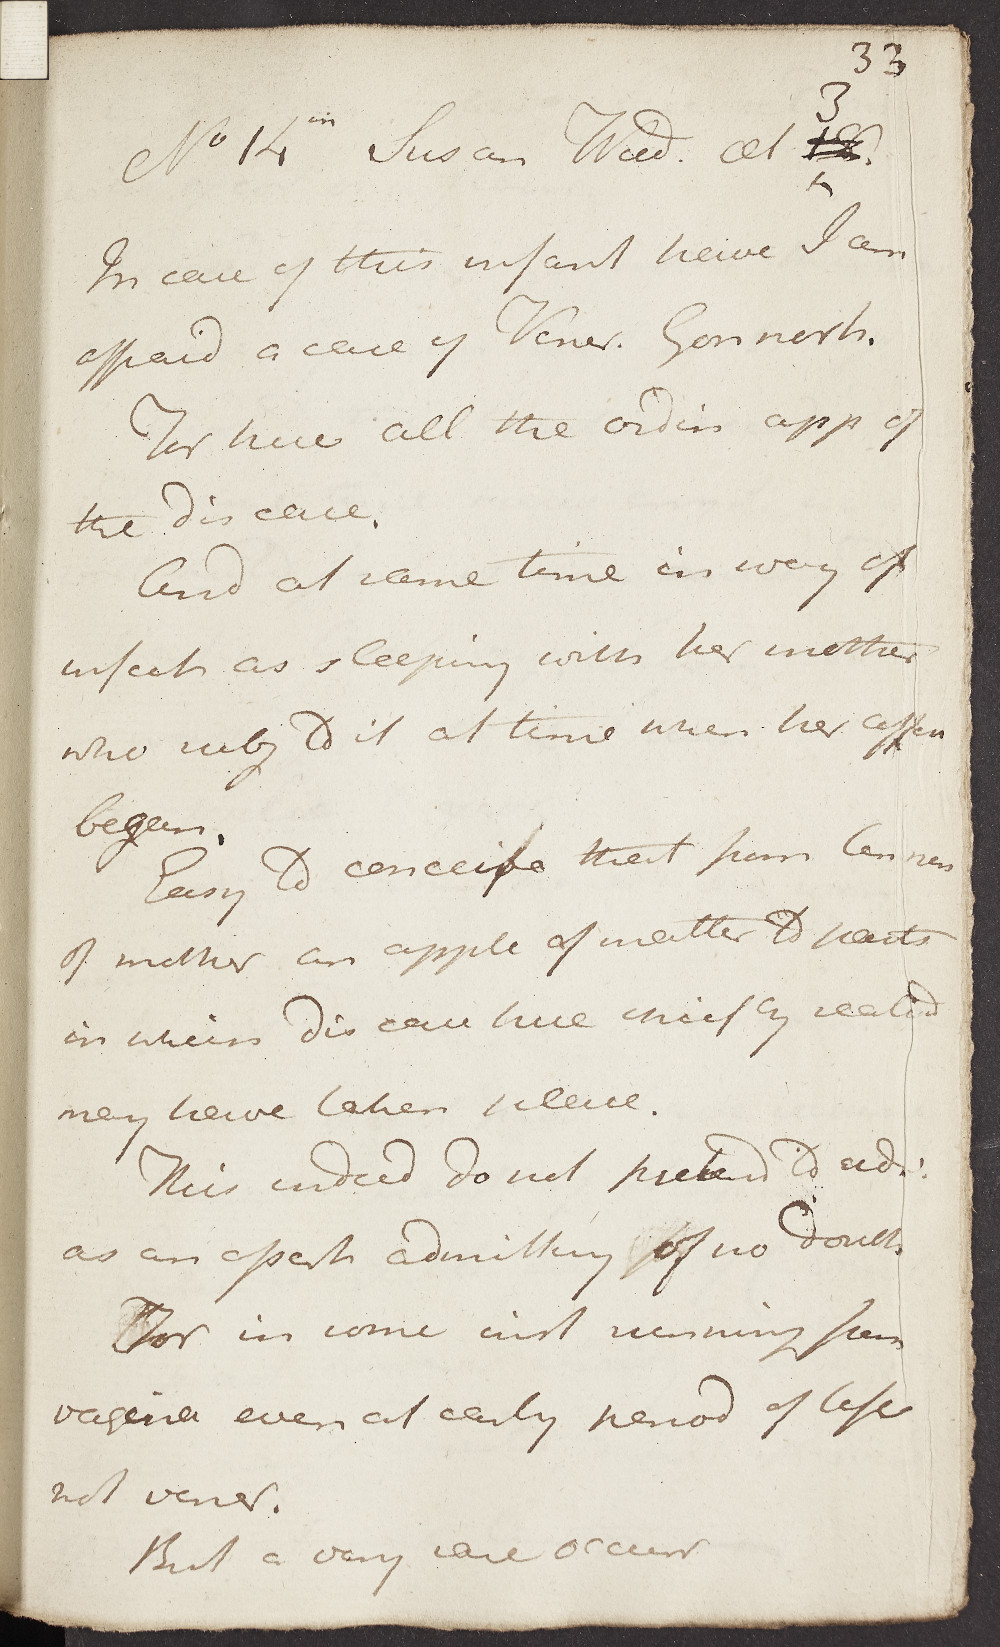 33
No 14 in Susan Wood. aet 3 18.
In case of this infant have I am
affraid a case of Vener. Gonnorh.
For here all the ordin app of
the disease.
And at same time in way of
infect as sleeping with her mother
who subj to it at time when her affen
began.
Easy to conceive that from
of mother an applc of matter to parts
in which disease here chiefly seated
may have taken place.
This indeed do not pretend to
as an admitting of no doubt
For in some inst running from
vagina even at early period of life
not vener.
But a very rare occurr